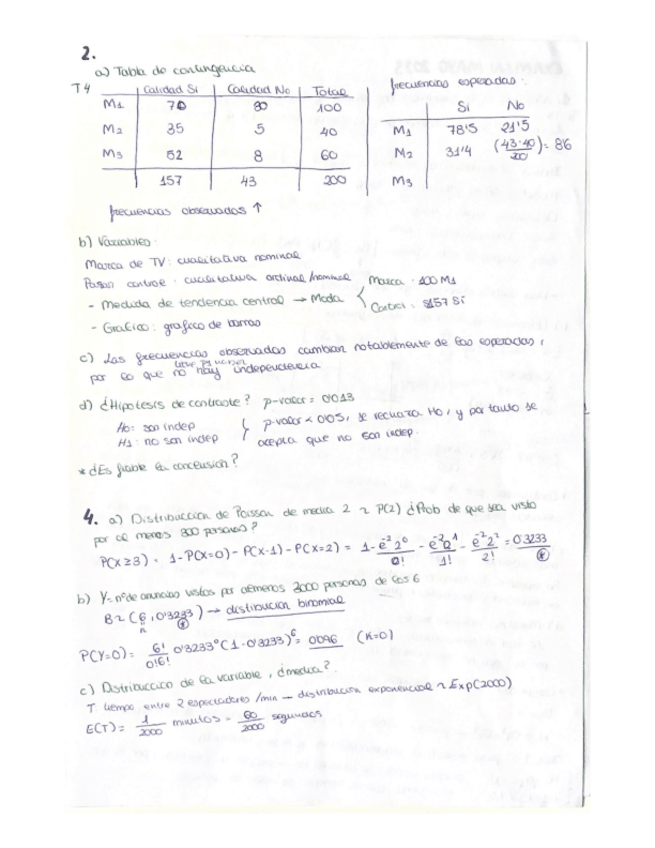 2.
a) Tabla de contingencia
T4 Calidad Si Calidad No Total
M1 70 30 100
M2 35 5 40
M3 52 8 60
157 43 200
frecuencias observadas ↑
frecuencias esperadas:
Si No
M1 78'5 21'5
M2 31'4 (43·40/200) = 86
M3
b) Variables:
Marca de TV: cualitativa nominal
Pasan control: cualitativa ordinal/nominal
- Medida de tendencia central → Moda
Marca: 100 M1
Control: 157 Si
- Grafico: grafico de barras
c) Las frecuencias observadas cambian notablemente de las esperadas,
por lo que no hay independencia
d) ¿Hipotesis de contraste? p-valor = 0'013
H0: son indep
H1: no son indep
p-valor < 0'05, se rechaza H0, y por tanto se
acepta que no son indep.
* ¿Es fiable la conclusion?
4. a) Distribución de Poisson de media 2 ~ P(2) ¿Prob de que sea visto
por al menos 300 personas?
P(X≥3) = 1-P(X=0)-P(X=1)-P(X=2) = 1 - e⁻²2⁰/0! - e⁻²2¹/1! - e⁻²2²/2! = 0'3233 *
b) Y = nº de anuncios vistos por al menos 3000 personas de los 6
B ~ (6, 0'3233) → distribucion binomial
n *
P(Y=0) = 6!/0!6! 0'3233⁰ (1-0'3233)⁶ = 0'096 (K=0)
c) Distribuccion de la variable, ¿media?
T tiempo entre 2 espectadores /min — distribucion exponencial ~ Exp(2000)
E(T) = 1/2000 minutos = 60/2000 segundos